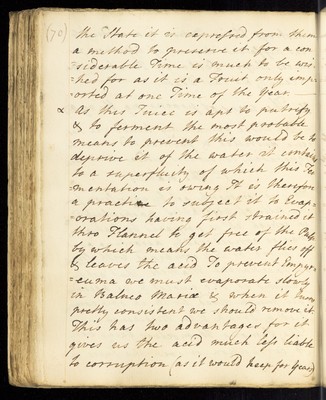 (70)
the State it is expressed from them
a method to preserve it for a con
=siderable Time is much to be wis
=hed for as it is a Fruit only imp
=orted at one Time of the Year
As this Juice is apt to putrify
& to ferment the most probable
means to prevent this would be to
deprive it of the water it contains
to a superfluity of which this Fer
=mentation is owing It is therefore
a practice to subject it to Evap=
=orations having first strained it
thro Flannel to get free of the Pulp
by which means the water flies off
& leaves the acid To prevent Empyr=
=euma we must evaporate slowly
in Balneo Mariæ & when it turns
pretty consistent we should remove it
This has two advantages for it
gives us the acid much less liable
to corruption (as it would keep for Years)